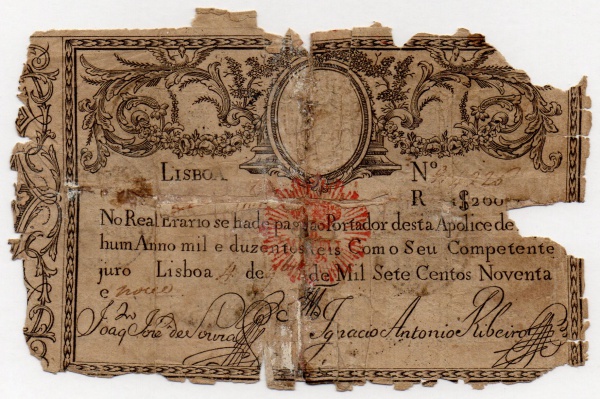 LISBOA Nº
R 1$200
No Real Erario se hade pasar ao Portador desta Apolice de
hum Anno mil e duzentos reis Com o Seu Competente
juro Lisboa 4 de de Mil Sete Centos Noventa
e nove
Joaq Joze de Souza Ignacio Antonio Ribeiro